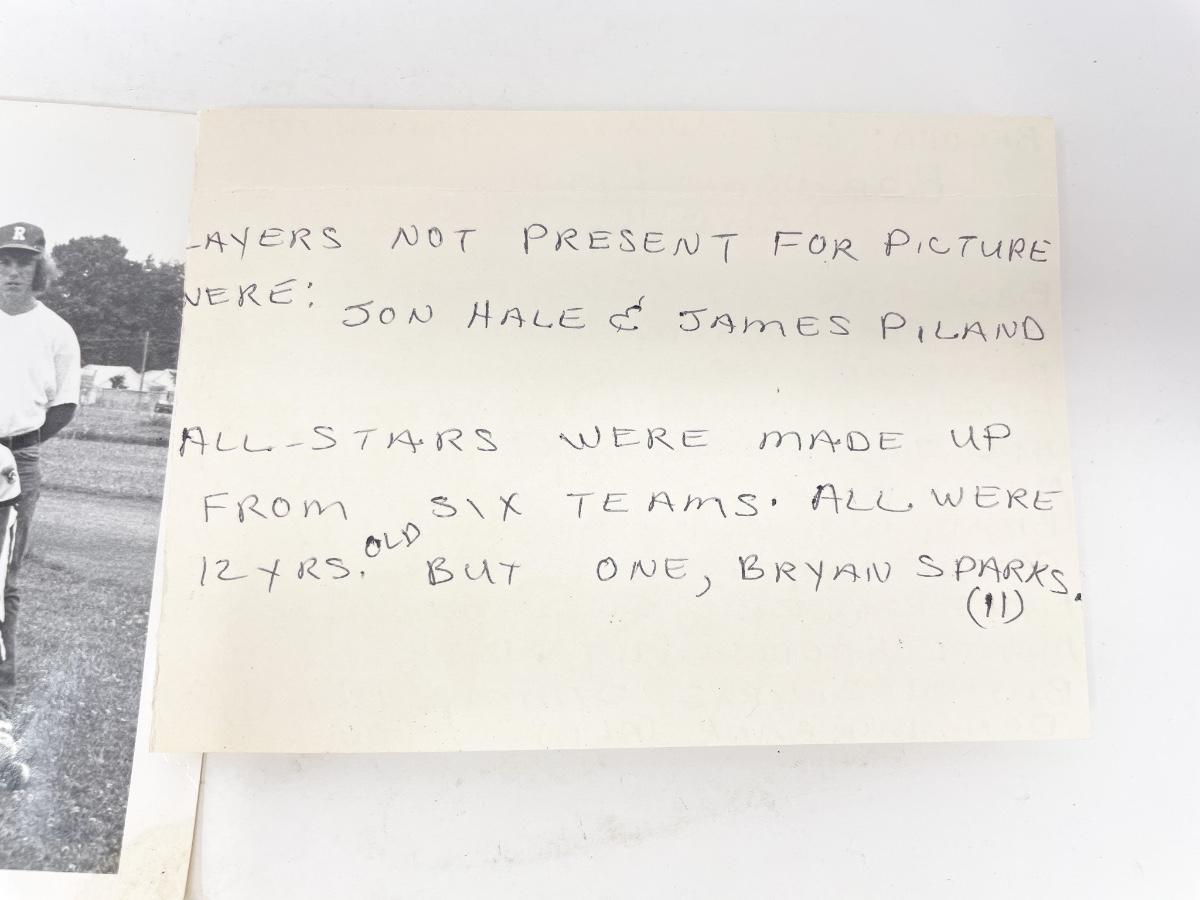 R
LAYERS NOT PRESENT FOR PICTURE
WERE:
JON HALE & JAMES PILAND
ALL-STARS WERE MADE UP
FROM SIX TEAMS. ALL WERE
12 YRS. OLD BUT ONE, BRYAN SPARKS.
(11)